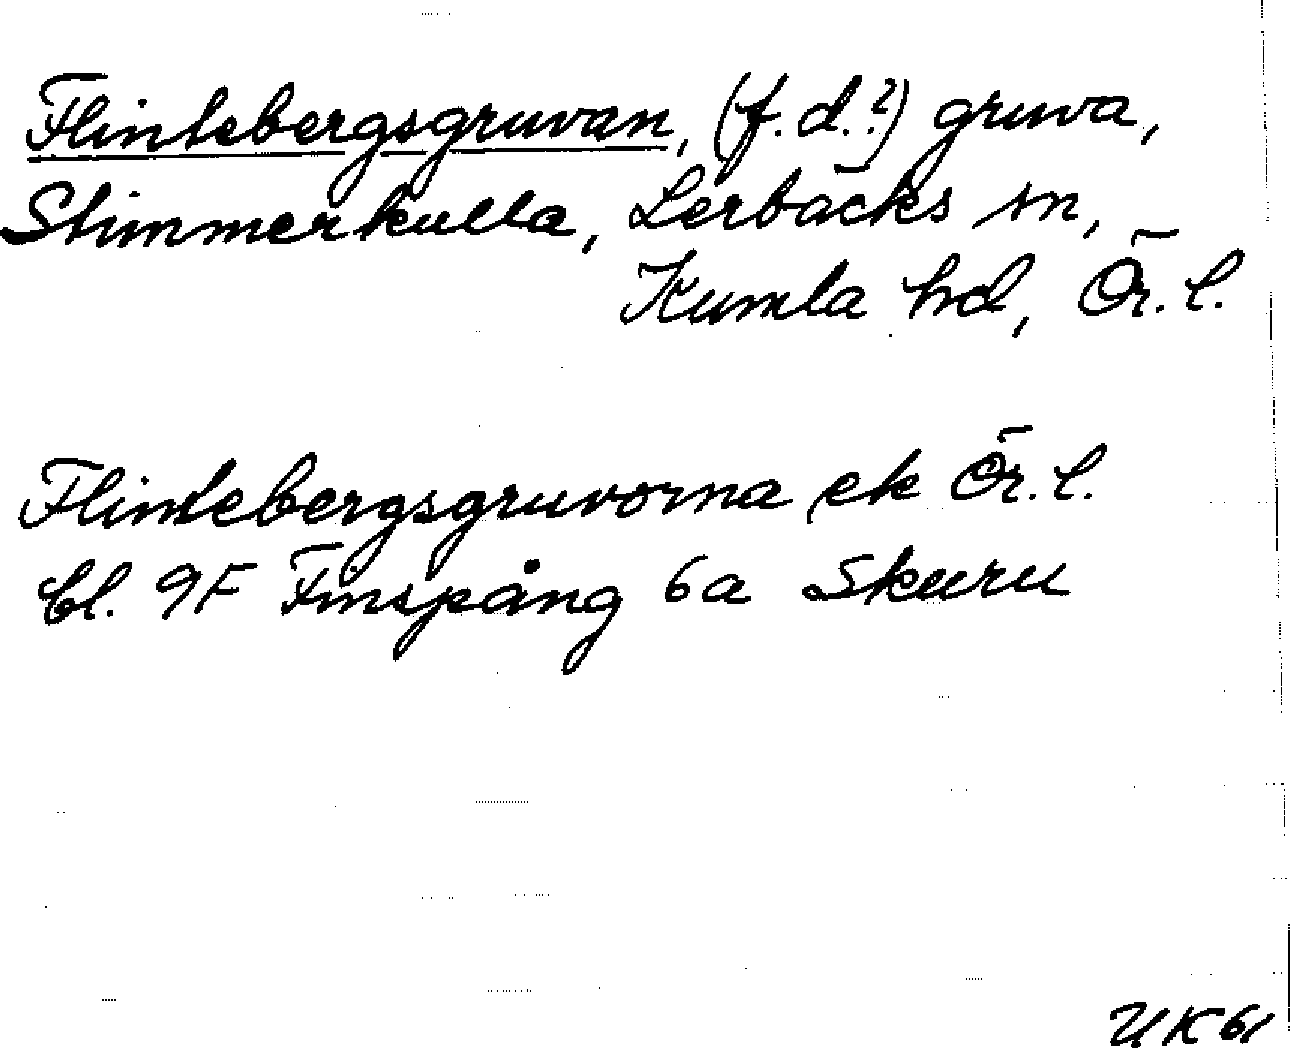 Flintebergsgruvan, (f.d.?) gruva,
Stimmerkulla, Lerbäcks sn,
Kumla hd, Ör. l.
Flintebergsgruvorna ek Ör. l.
bl. 9F Finspång 6a Skuru
UK 61